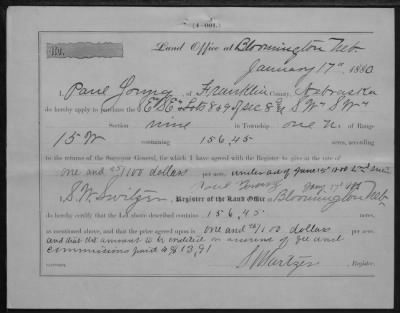 (4—001.)
No.
Land Office at Bloomington Neb
January 17th, 1880
I, Paul Young, of Franklin County, Nebraska
do hereby apply to purchase the Lots 8 & 9 sec 8 & SW SW
Section nine in Township one N of Range
15 W containing 156.45 acres, according
to the returns of the Surveyor General, for which I have agreed with the Register to give at the rate of
one and 25/100 dollars per acre. under act of June 15th 1880
Paul Young
S. W. Switzer, Register of the Land Office at Bloomington Neb
do hereby certify that the Lot above described contains 156.45 acres,
as mentioned above, and that the price agreed upon is one and 25/100 dollars per acre.
and that the amount to be credited on account of fee and
commissions paid is $13.91
S W Switzer
Register.